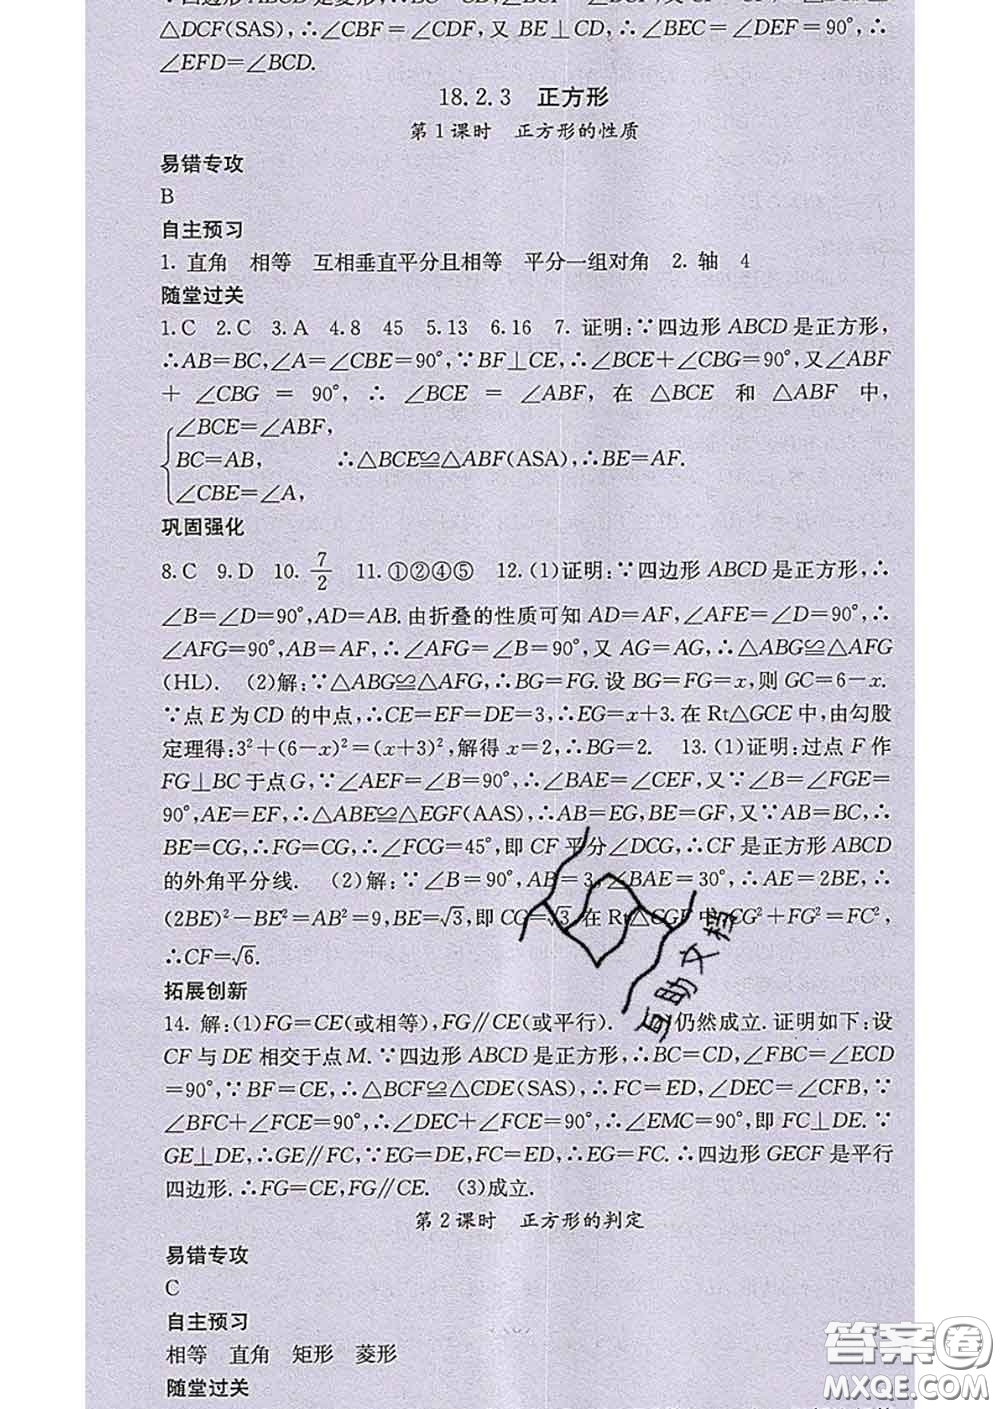 △DCF(SAS),∴∠CBF=∠CDF,又 BE⊥CD,∴∠BEC=∠DEF=90°,∴
∠EFD=∠BCD.
18.2.3 正方形
第1课时 正方形的性质
易错专攻
B
自主预习
1. 直角 相等 互相垂直平分且相等 平分一组对角 2. 轴 4
随堂过关
1.C 2.C 3.A 4.8 45 5.13 6.16 7. 证明:∵四边形 ABCD 是正方形,
∴AB=BC,∠A=∠CBE=90°,∵BF⊥CE,∴∠BCE+∠CBG=90°,又∠ABF
+ ∠CBG = 90°, ∴ ∠BCE = ∠ABF, 在 △BCE 和 △ABF 中,
∠BCE=∠ABF,
BC=AB, ∴△BCE≌△ABF(ASA),∴BE=AF.
∠CBE=∠A,
巩固强化
8.C 9.D 10. 7/2 11.①②④⑤ 12.(1)证明:∵四边形 ABCD 是正方形,∴
∠B=∠D=90°,AD=AB.由折叠的性质可知 AD=AF,∠AFE=∠D=90°,∴
∠AFG=90°,AB=AF,∴∠AFG=∠B=90°,又 AG=AG,∴△ABG≌△AFG
(HL). (2)解:∵△ABG≌△AFG,∴BG=FG.设 BG=FG=x,则 GC=6-x.
∵点 E 为 CD 的中点,∴CE=EF=DE=3,∴EG=x+3.在 Rt△GCE 中,由勾股
定理得:3²+(6-x)²=(x+3)²,解得 x=2,∴BG=2. 13.(1)证明:过点 F 作
FG⊥BC 于点 G,∵∠AEF=∠B=90°,∴∠BAE=∠CEF,又∵∠B=∠FGE=
90°,AE=EF,∴△ABE≌△EGF(AAS),∴AB=EG,BE=GF,又∵AB=BC,∴
BE=CG,∴FG=CG,∴∠FCG=45°,即 CF 平分∠DCG,∴CF 是正方形 ABCD
的外角平分线. (2)解:∵∠B=90°,AB=3,∠BAE=30°,∴AE=2BE,∴
(2BE)²-BE²=AB²=9,BE=√3,即 CG=√3.在 Rt△CGF 中,CG²+FG²=FC²,
∴CF=√6.
互助文档
拓展创新
14. 解:(1)FG=CE(或相等),FG∥CE(或平行). 仍然成立.证明如下:设
CF 与 DE 相交于点 M.∵四边形 ABCD 是正方形,∴BC=CD,∠FBC=∠ECD
=90°,∵BF=CE,∴△BCF≌△CDE(SAS),∴FC=ED,∠DEC=∠CFB,∵
∠BFC+∠FCE=90°,∴∠DEC+∠FCE=90°,∴∠EMC=90°,即 FC⊥DE.∵
GE⊥DE,∴GE∥FC,∵EG=DE,FC=ED,∴EG=FC.∴四边形 GECF 是平行
四边形.∴FG=CE,FG∥CE. (3)成立.
第2课时 正方形的判定
易错专攻
C
自主预习
相等 直角 矩形 菱形
随堂过关
答案卷
MXQE.COM